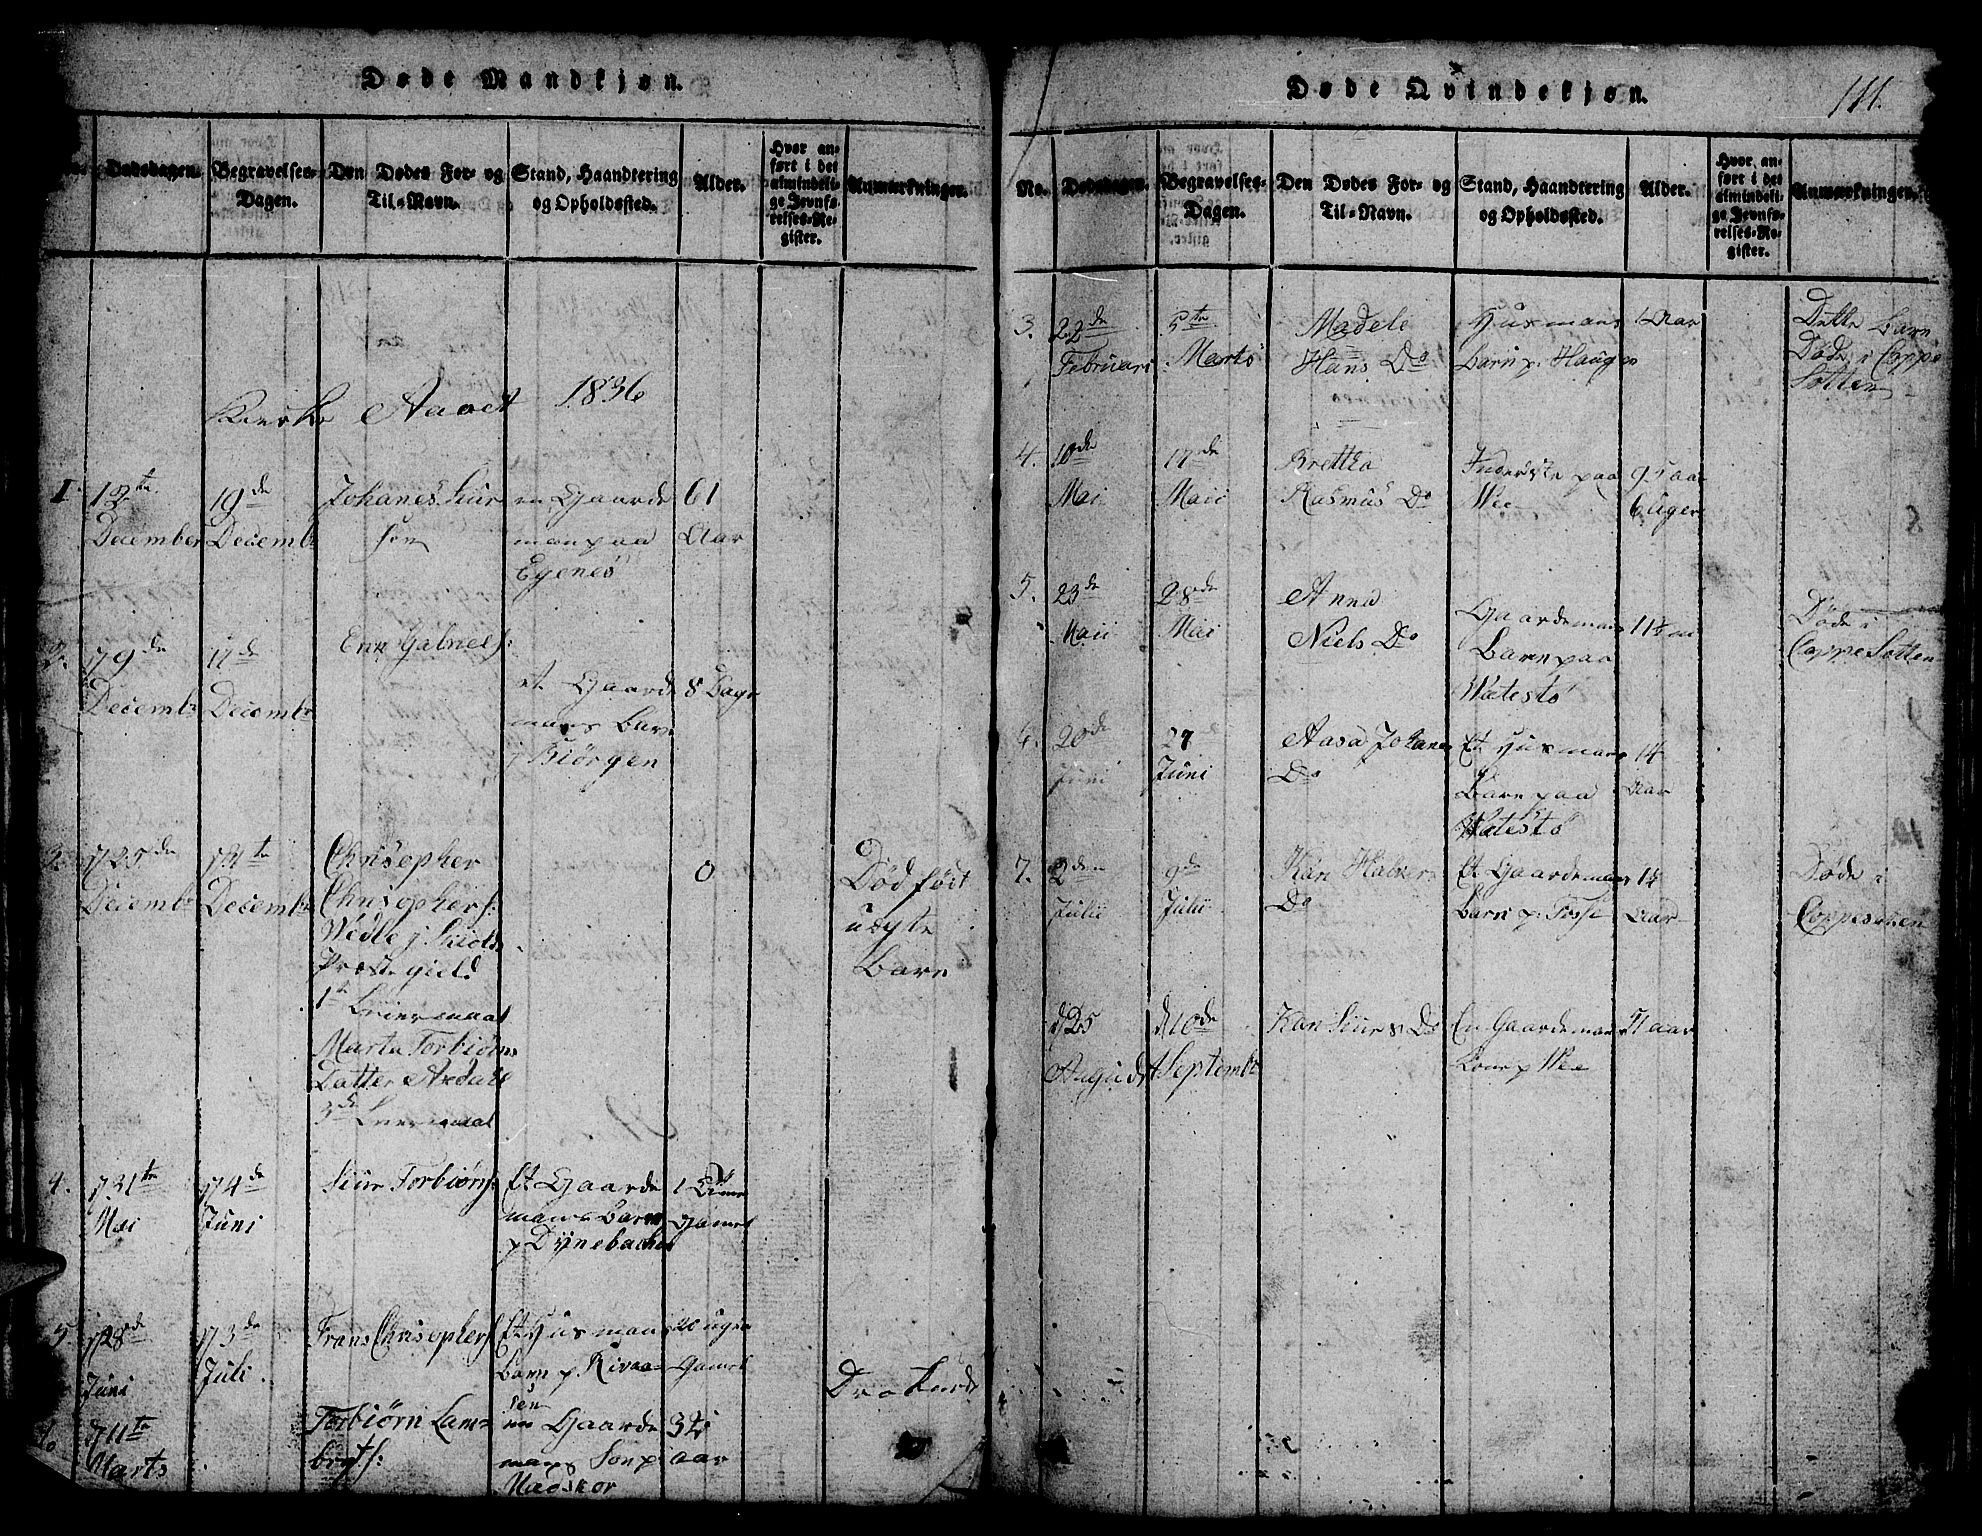 Døde Mandkjøn.
Dødsdagen.
Begravelses-
Dagen.
Den Dødes For- og
Til-Navn.
Stand, Haandtering
og Opholdssted.
Alder.
Hvor an-
ført i det
almindeli-
ge Jevnfø-
relses-Re-
gister.
Anmærkninger.
Kirske Aaret 1836
1.
December
19de
Decemb
Johanes Siur
sen
en Gaarde
man paa
Egenes
61
Aar
2.
9de
Decembr
17de
Decembr
Gabriels:
et Gaarde
mans Barn
Biørgen
8 Dage
3.
25de
Decembr
Decembr
Chrisopher
Chrisophers:
Wedle j.
Præstegield
1te Leiermaal
Marta Torbiørns
Datter Ardahl
3de Leiermaal
0
Død født
uægte
Barn
4.
31te
Mai
4de
Juni
Siur Torbiørns:
Et Gaarde
mans Barn
p Dynebacken
1 Time
Gamel
5.
28de
Juni
3de
Juli
Frans Chrisophers
Et Husmans
Barn p. Rivaa
20 uger
Gamel
11te
Marts
Torbiørn Lam-
brgts:
en Gaarde
mans Son p
34
aar
Druknede
Døde Qvindekjøn.
111.
No.
Dødsdagen.
Begravelses-
Dagen.
Den Dødes For- og
Til-Navn.
Stand, Haandtering
og Opholdssted.
Alder.
Hvor an-
ført i det
almindeli-
ge Jevnfø-
relses-Re-
gister.
Anmærkninger.
3.
22de
Februari
5te
Marts
Madele
Hans Do
Husmans
Barn p. Hauge
1 Aar
Dette Barn
Døde i Coppe
Sotten
4.
10de
Mai
17de
Maii
Brettha
Rasmus Do
Inderste paa
Wee
95 aar
6 uger
5.
23de
Maii
28de
Mai
Anna
Niels Do
Gaardemans
Barn paa
Watestø
Døde i
Coppe Sotten
6.
20de
Juni
27
Juni
Aasa Johanes
Do
Et Husmans
Barn paa
Watestø
14
Aar
7.
2den
Julii
9de
Julii
Kari Halver
Do
Et Gaardemans
Barn p: Fosse
Aar
Døde i
d 25
August
d 10de
Septembr
Kari Siurs Do
En Gaardemans
Kone p Wee
71 aar